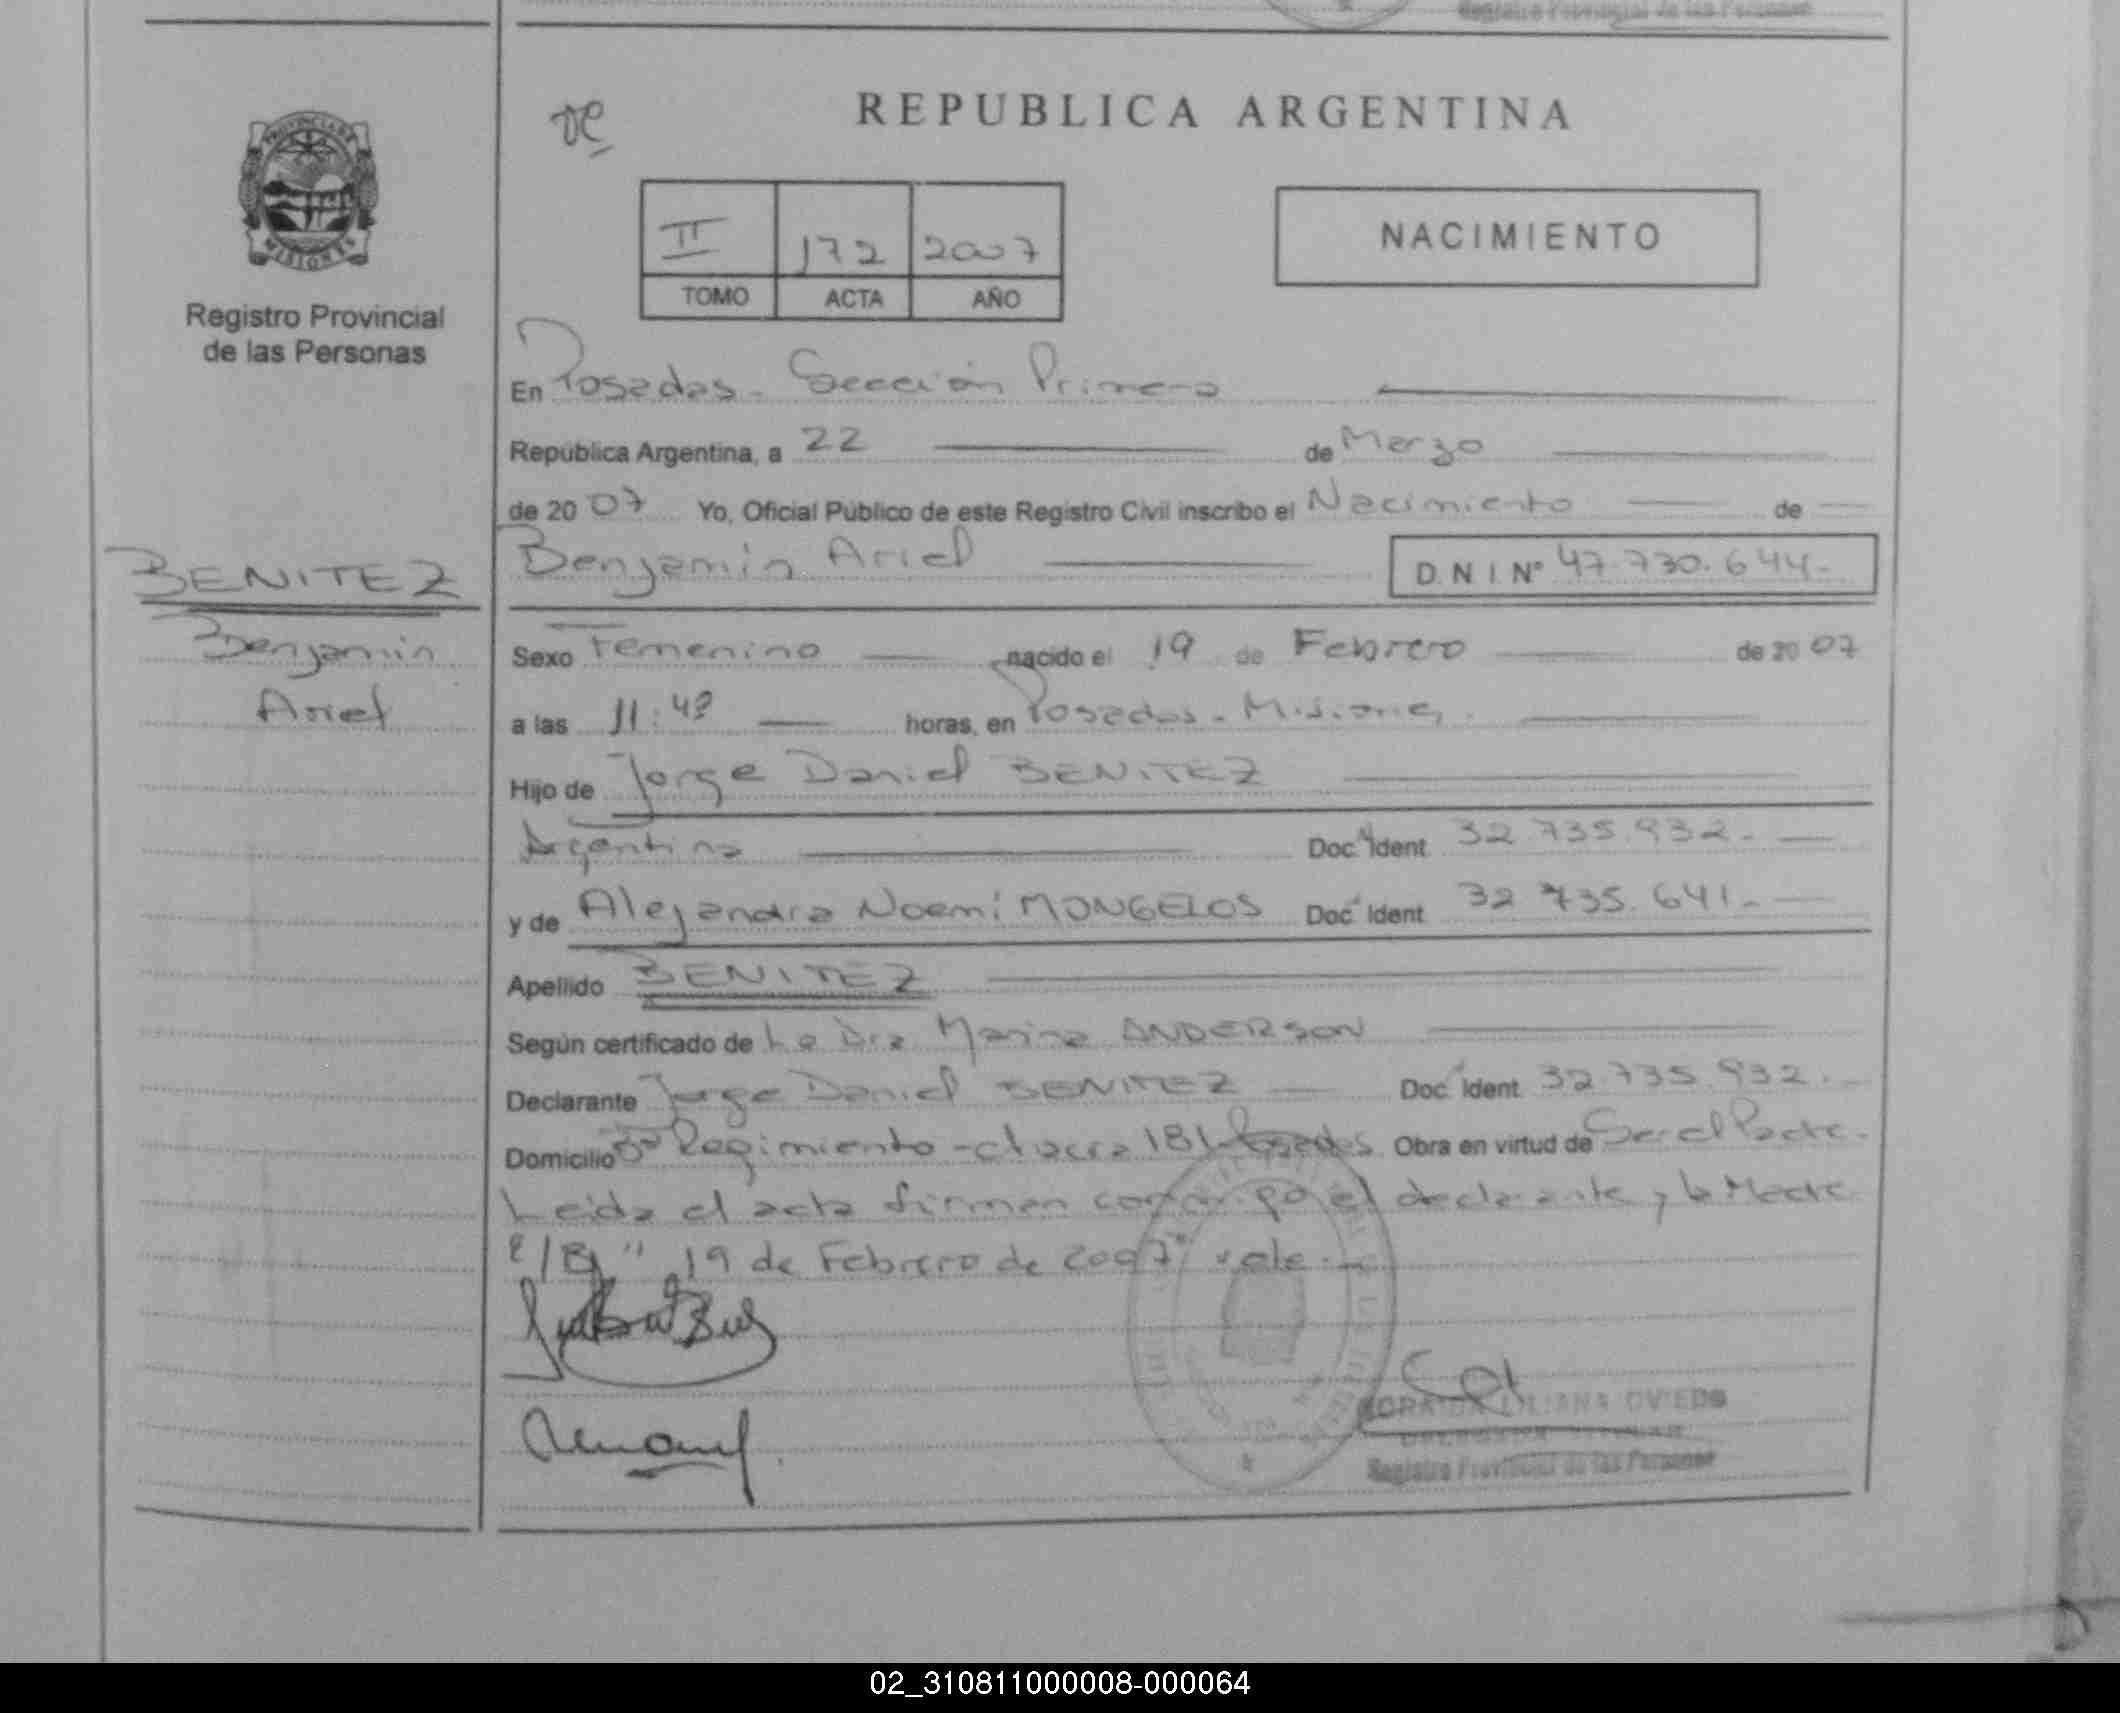 Registro Provincial de las Personas
PROVINCIA DE
MISIONES
Registro Provincial
de las Personas
BENITEZ
Benjamin
Ariel
REPUBLICA ARGENTINA
II 172 2007
TOMO ACTA AÑO
NACIMIENTO
En Posadas - Sección Primera
República Argentina, a 22 de Marzo
de 2007 Yo, Oficial Público de este Registro Civil inscribo el Nacimiento de
Benjamin Ariel D.N.I. Nº 47.730.644-
Sexo Femenino nacido el 19 de Febrero de 2007
a las 11:43 horas, en Posadas - Misiones.
Hijo de Jorge Daniel BENITEZ
Argentina Doc. Ident. 32.735.932-
y de Alejandra Noemi MONGELOS Doc. Ident. 32.735.641-
Apellido BENITEZ
Según certificado de La Dra Marina ANDERSON
Declarante Jorge Daniel BENITEZ Doc. Ident. 32.735.932.-
Domicilio Regimiento - chacra 181 - Posadas Obra en virtud de Ser el Padre.
Leida el acta firman conmigo el declarante y la Madre
E/B "19 de Febrero de 2007" vale.-
LILIANA OVIEDO
Registro Provincial de las Personas
02_310811000008-000064